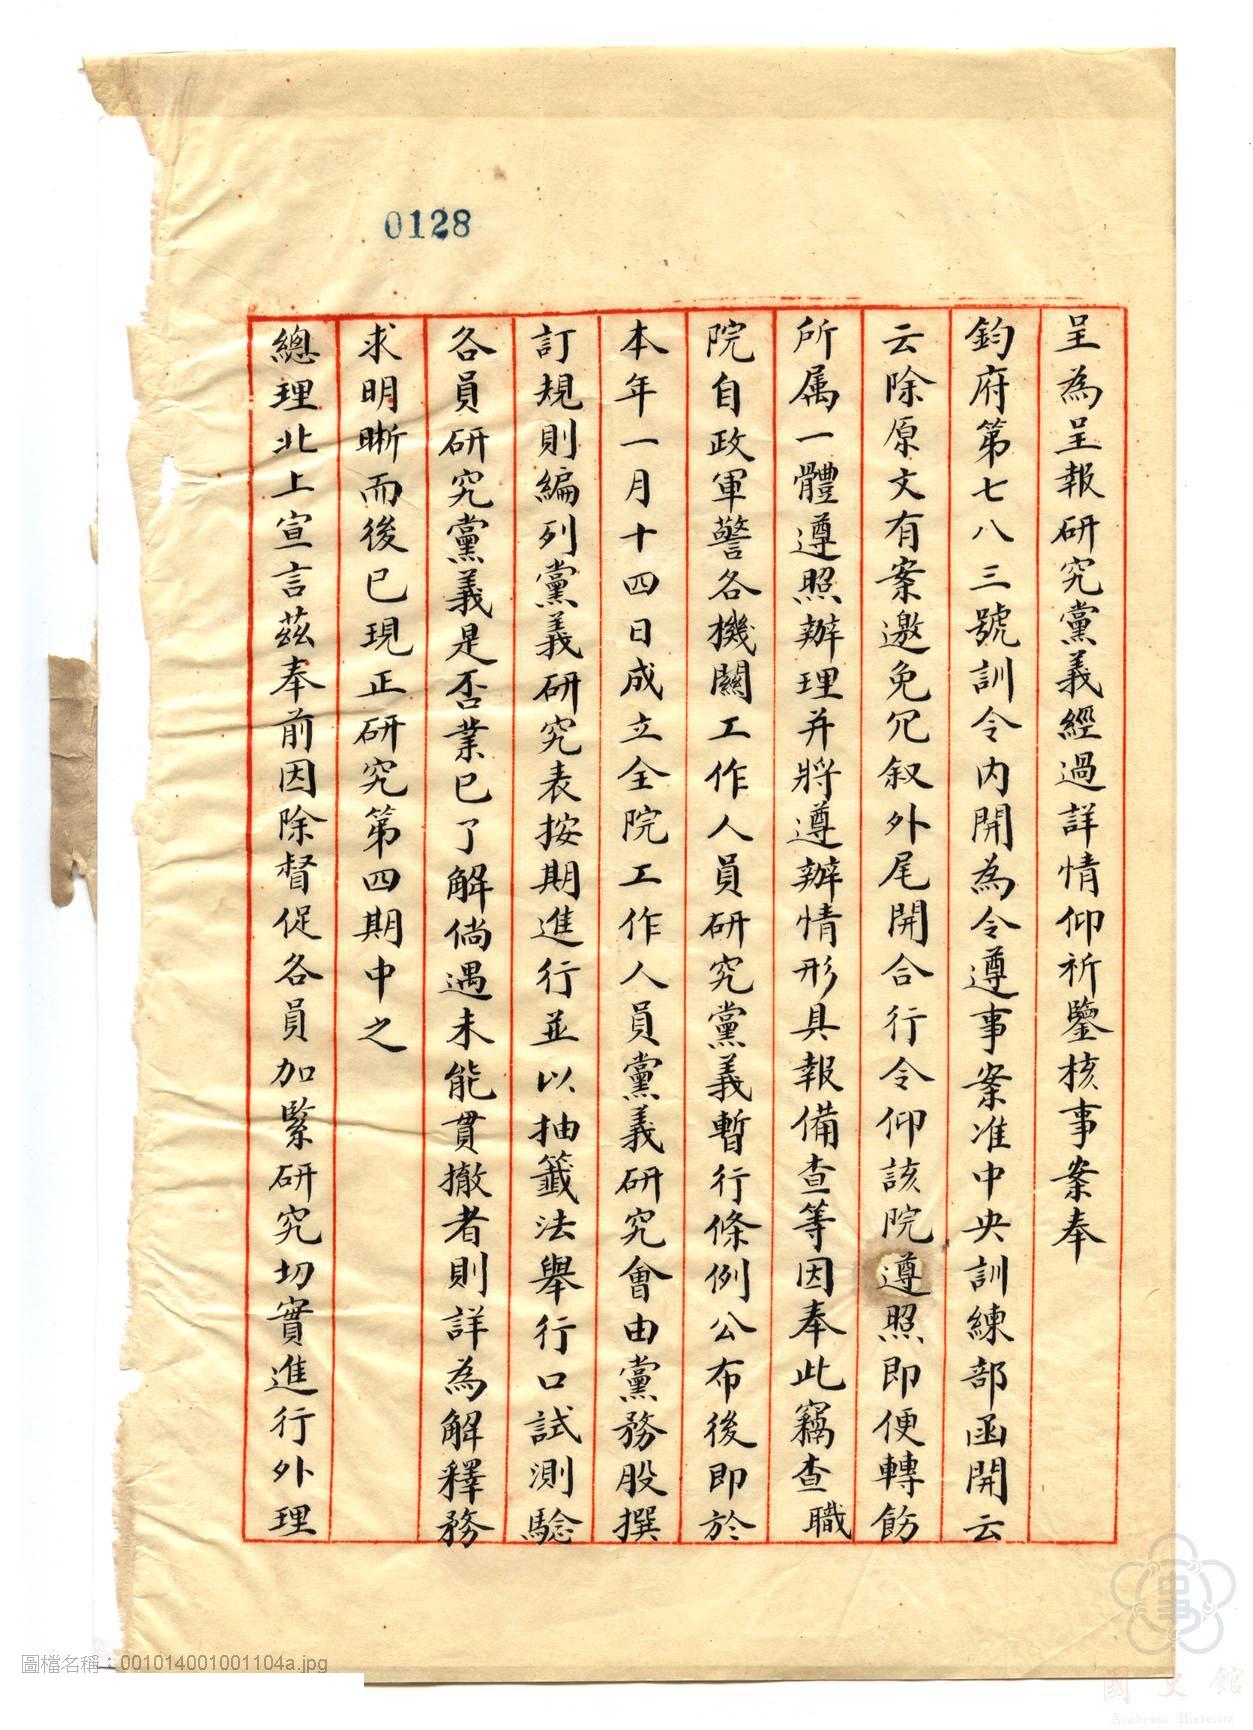 0128
呈為呈報研究黨義經過詳情仰祈鑒核事案奉
鈞府第七八三號訓令內開為令遵事案准中央訓練部函開云
云除原文有案邀免冗叙外尾開合行令仰該院遵照即便轉飭
所属一體遵照辦理并將遵辦情形具報備查等因奉此竊查職
院自政軍警各機關工作人員研究黨義暫行條例公布後即於
本年一月十四日成立全院工作人員黨義研究會由黨務股撰
訂規則編列黨義研究表按期進行並以抽籤法舉行口試測驗
各員研究黨義是否業已了解倘遇未能貫撤者則詳為解釋務
求明晣而後已現正研究第四期中之
總理北上宣言茲奉前因除督促各員加緊研究切實進行外理
圖檔名稱：001014001001104a.jpg
國史館
Academia Historica